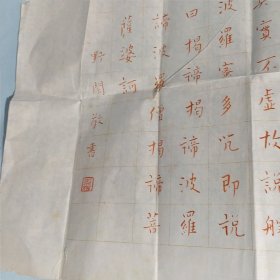 實不虛故說般
波羅蜜多咒即說
曰揭諦揭諦波羅
諦波羅僧揭諦菩
薩婆訶
野閒敬書